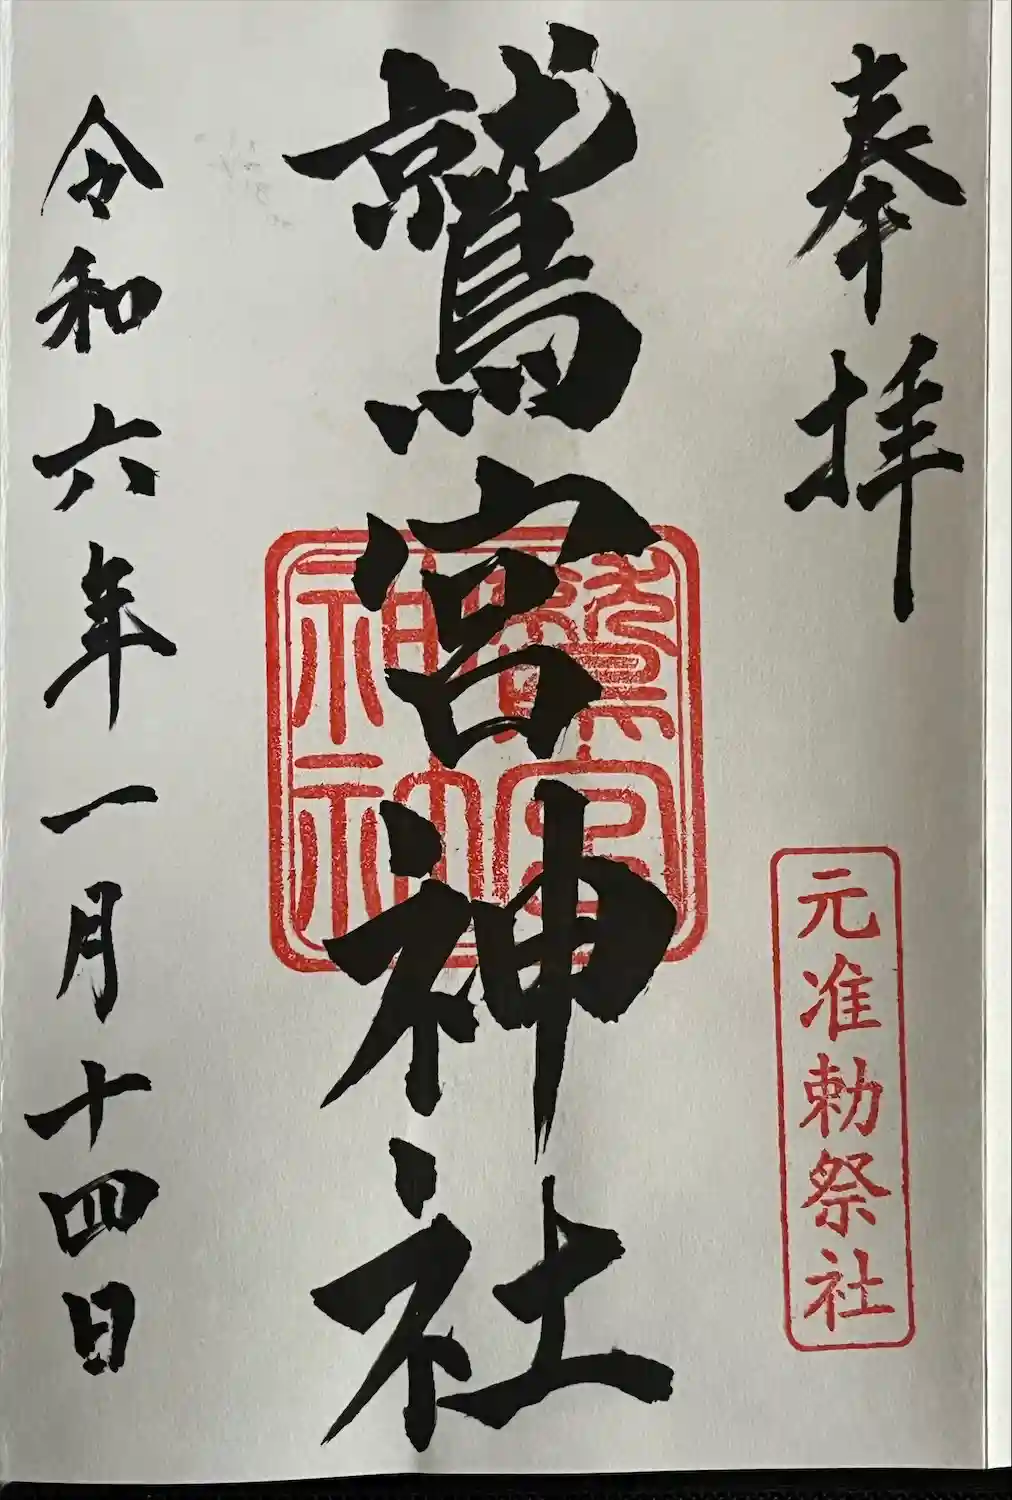 奉拝
元准勅祭社
鷲宮神社
鷲宮神社
令和六年一月十四日